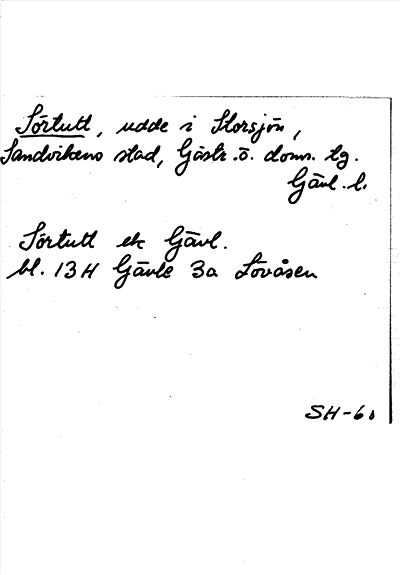 Sörtutt, udde i Storsjön,
Sandvikens stad, Gästr.ö. doms. tg.
Gävl.l.
Sörtutt ek Gävl.
bl. 13H Gävle 3a Lövåsen
SH-61